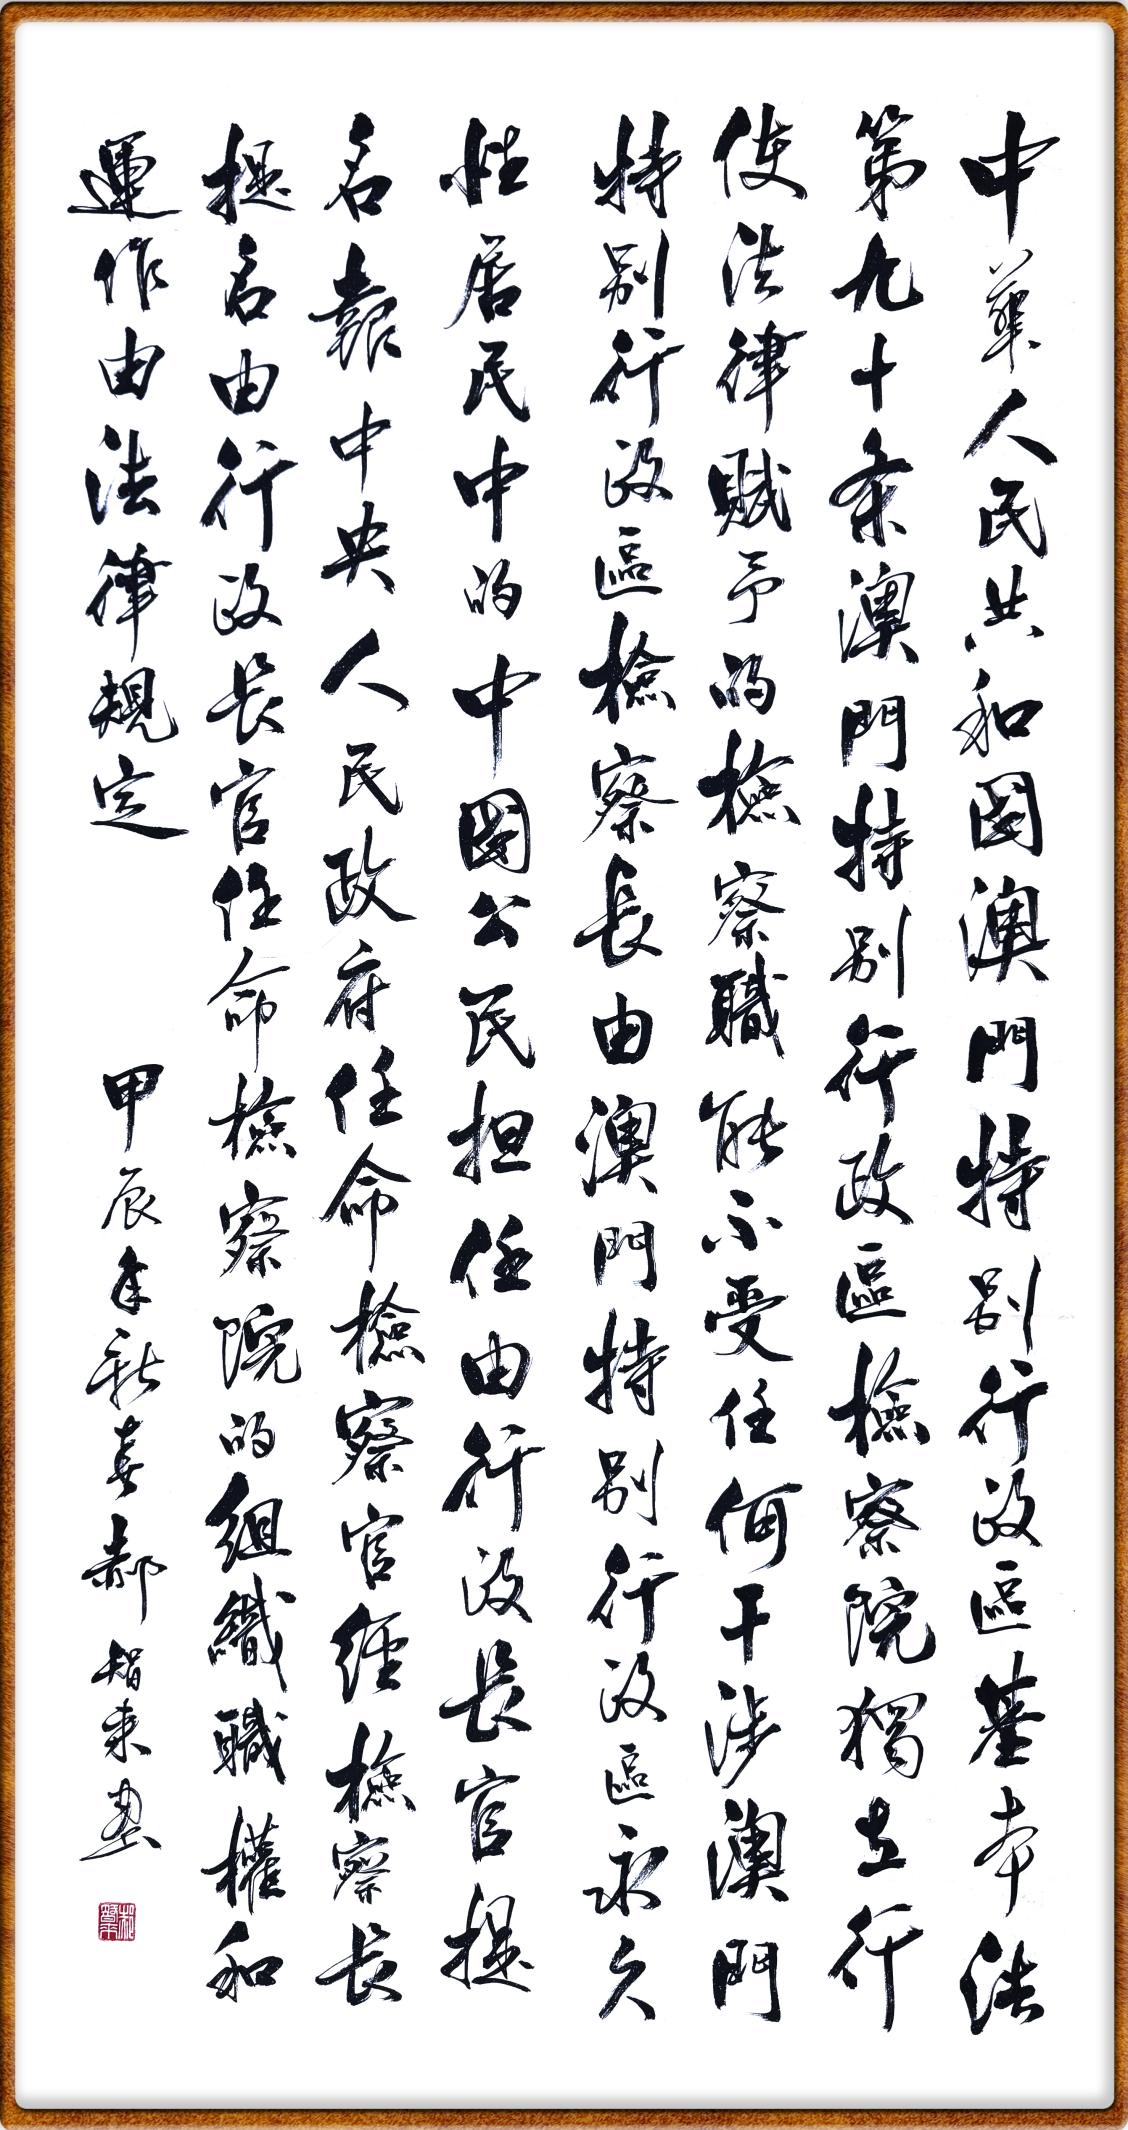 中華人民共和國澳門特別行政區基本法
第九十条澳門特別行政區檢察院獨立行
使法律賦予的檢察職能不受任何干涉澳門
特別行政區檢察長由澳門特別行政區永久
性居民中的中國公民担任由行政長官提
名報中央人民政府任命檢察官經檢察長
提名由行政長官任命檢察院的組織職權和
運作由法律規定
甲辰年秋喜郝智來書